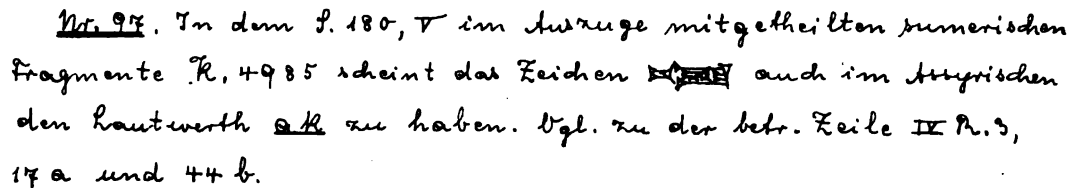 Nr. 97. In dem S. 180, V im Auszuge mitgetheilten sumerischen
Fragmente K. 4985 scheint das Zeichen auch im Assyrischen
den Lautwerth ak zu haben. Vgl. zu der betr. Zeile IV R. 3,
17 a und 44 b.